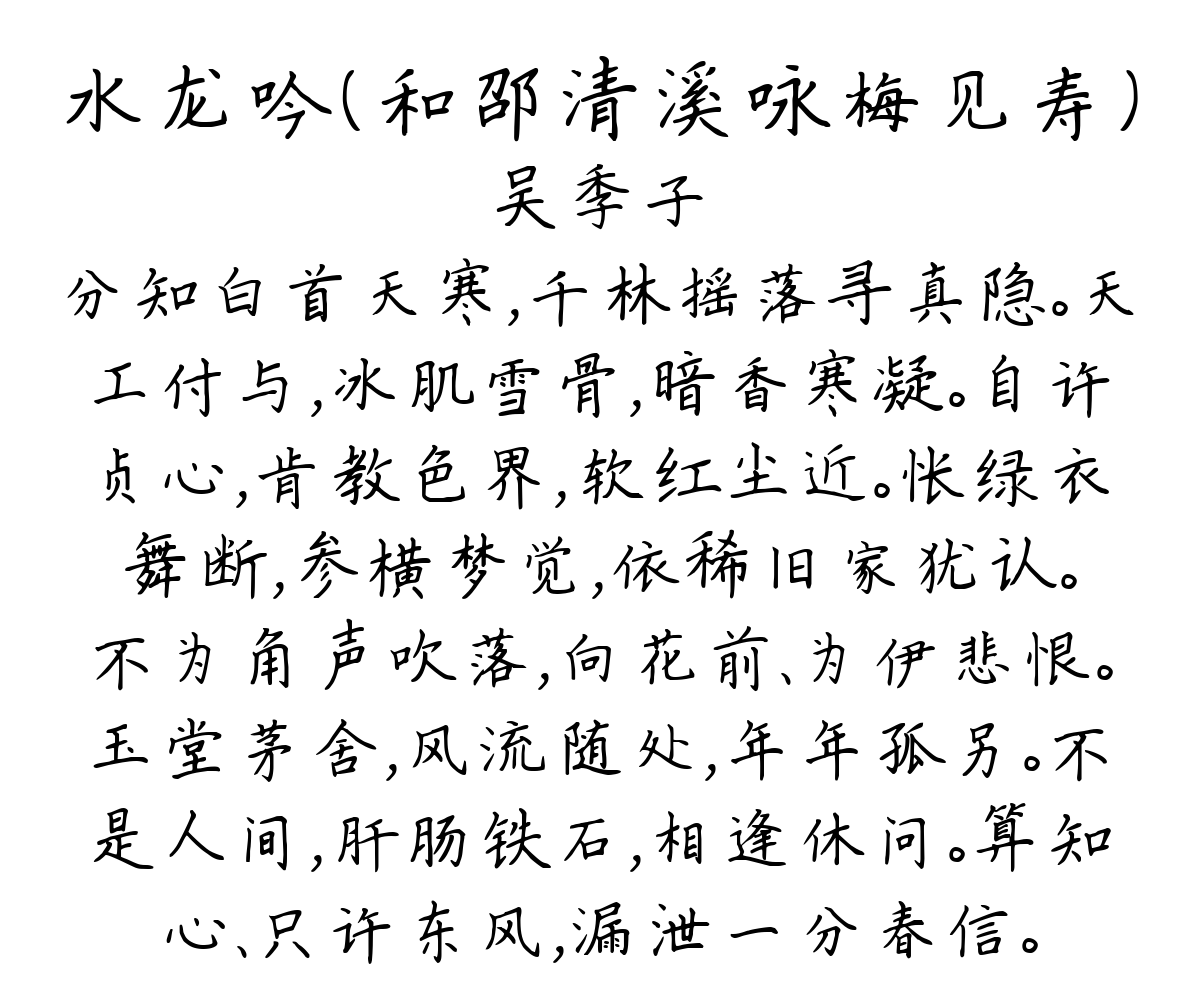 水龙吟(和邵清溪咏梅见寿)
吴季子
分知白首天寒,千林摇落寻真隐。天
工付与,冰肌雪骨,暗香寒凝。自许
贞心,肯教色界,软红尘近。怅绿衣
舞断,参横梦觉,依稀旧家犹认。
不为角声吹落,向花前、为伊悲恨。
玉堂茅舍,风流随处,年年孤另。不
是人间,肝肠铁石,相逢休问。算知
心、只许东风,漏泄一分春信。